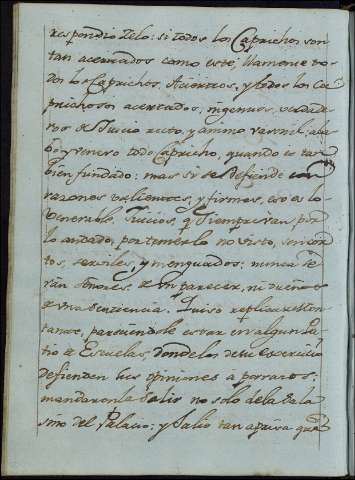 respondio Zelo: si todos los Caprichos son
tan acertados como este, llamense to-
dos los Caprichos, Aciertos, y todos los Ca-
prichosos acertados, ingenuos, verdade-
ros de Juicio recto, y animo varonil; ala-
bo, y venero todo Capricho, quando es tan
bien fundado: mas si se defiende con
razones valientes, y firmes, eso es lo
Venerable. Juicios, q siempre van por
lo andado, por temer lo no visto, son cor-
tos, serviles, y menguados: nunca se-
ran Señores, de un parecer, ni dueños
de una Sentencia. Quiso replicar el Ton-
tanor, pareciendole estar en algun Pa-
tio de Escuelas, donde los de su exercicio
defienden sus opiniones a porrazos;
mandaronle Salir no solo de la Sala
sino del Palacio: y Salio tan aprisa que